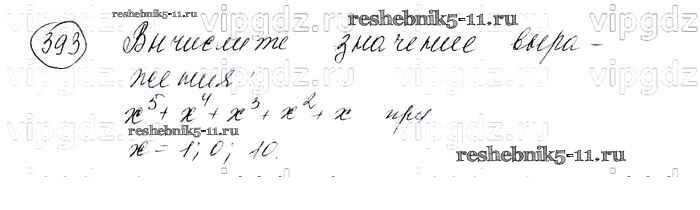 reshebnik5-11.ru
393 Вычислите значение выра-
жения
x⁵ + x⁴ + x³ + x² + x при
reshebnik5-11.ru
x = 1; 0; 10.
reshebnik5-11.ru